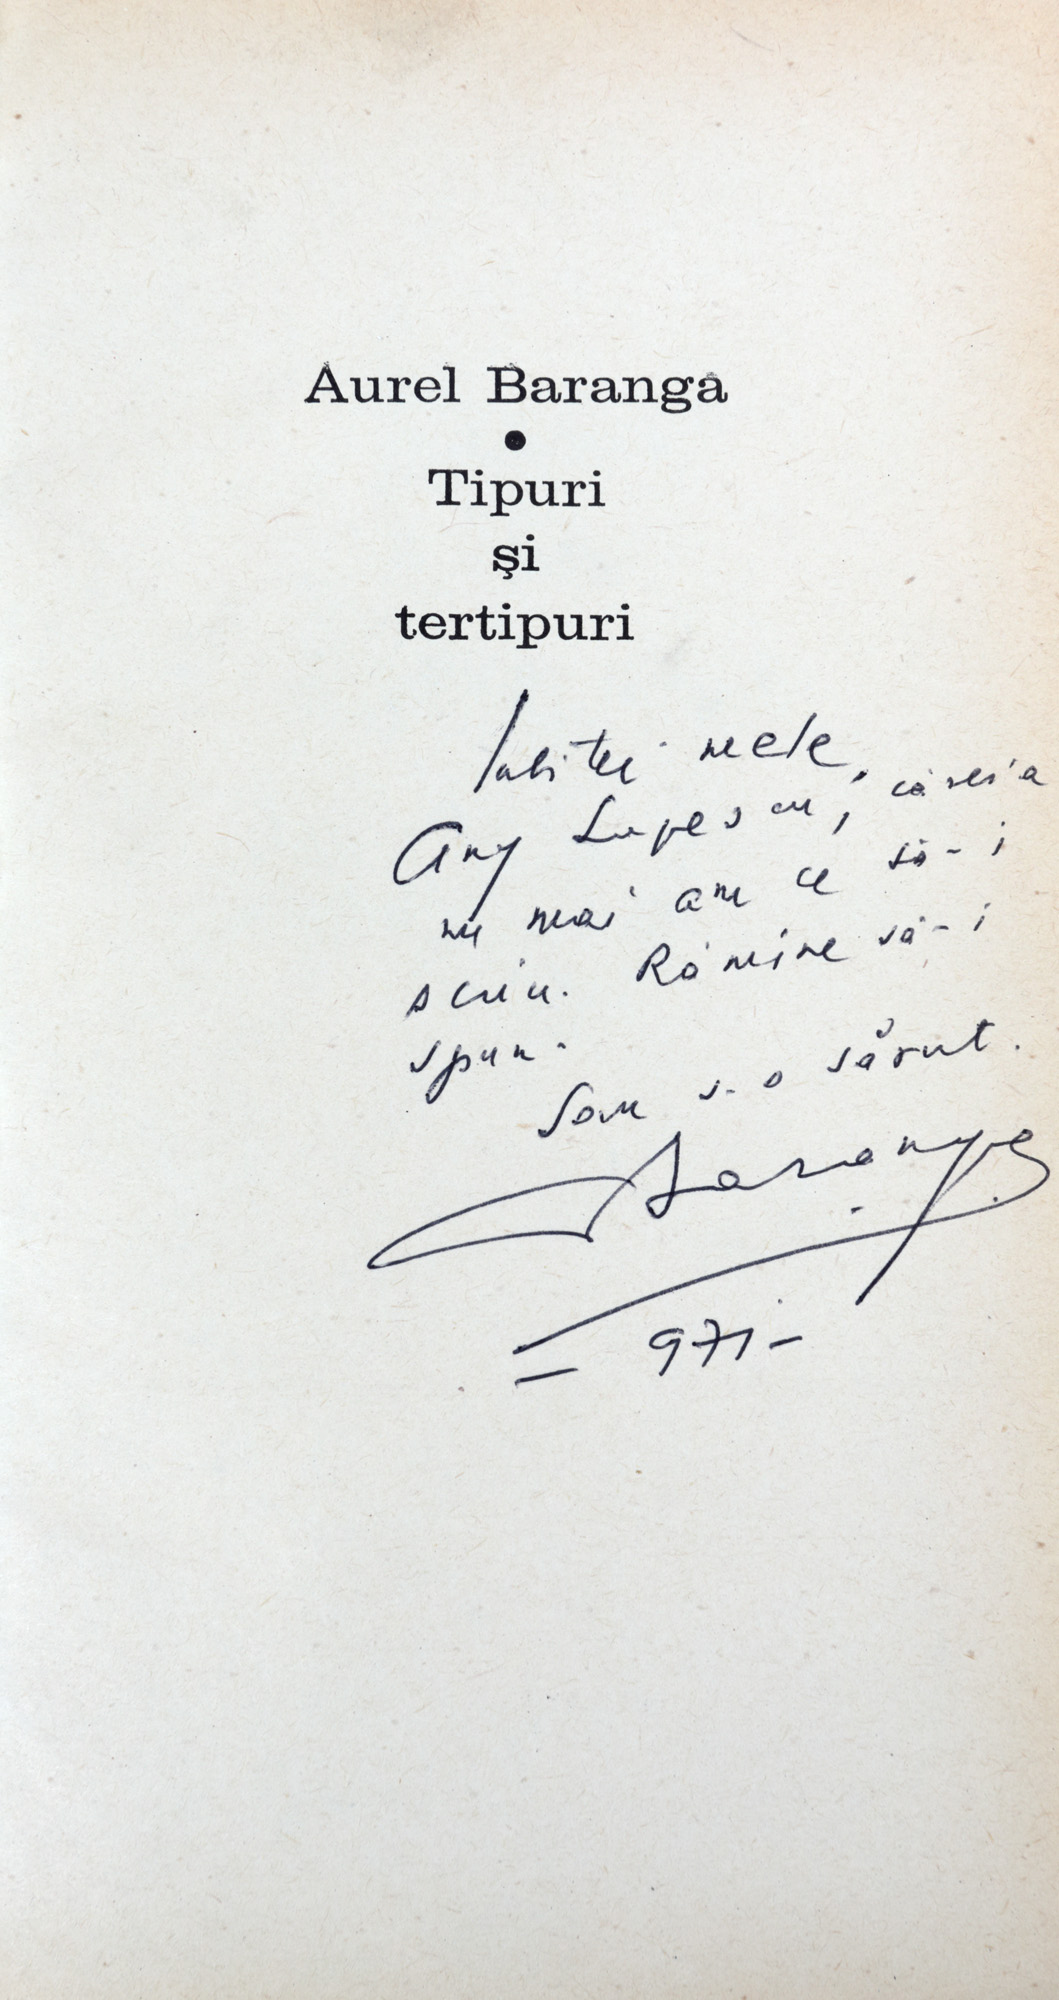 Aurel Baranga
•
Tipuri
şi
tertipuri
Iubitei mele,
Any Lupescu, căreia
nu mai am ce să-i
scriu. Rămîne să-i
spun.
Sau s-o sărut.
Baranga
– 971 –